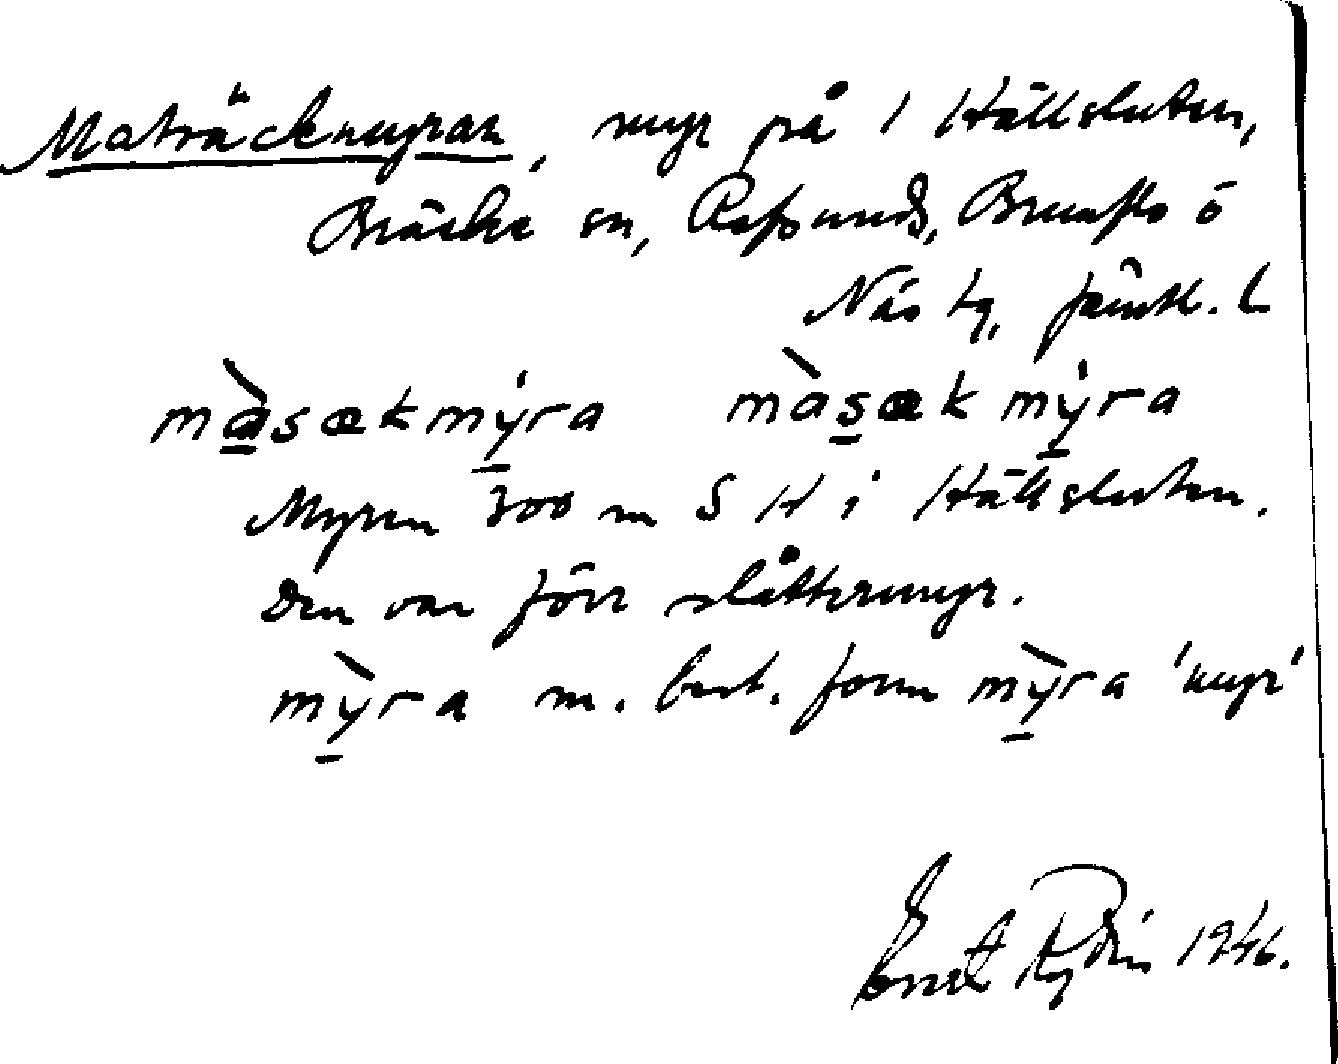 Maträckmyran, myr på 1 Hällsluten,
Bräcke sn, Refsunds, Brunflo o
Näs tg, Jämtl. l.
màsækmy̍ra màsækmy̍ra
Myren 300 m S H i Hällsluten.
Den var förr slåttermyr.
mỳra m. best. form mỳra 'myr'
Ernst Rydin 1946.